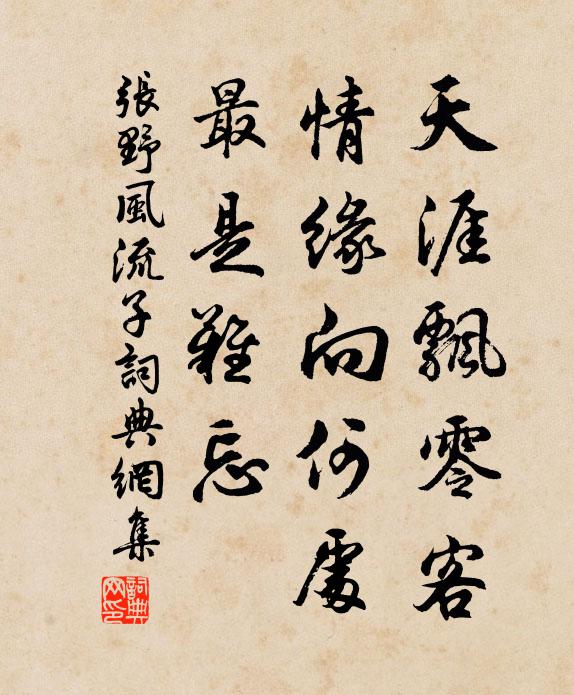 天涯飄零客
情緣向何處
最是難忘
張野風流子詞典網集
詞典網印